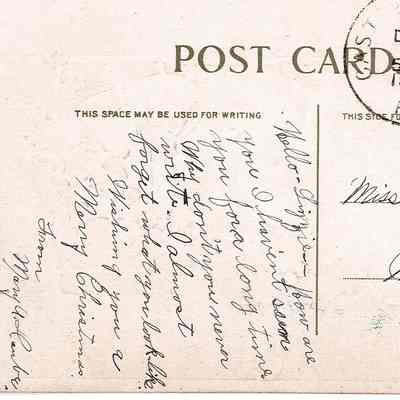 POST CARD
THIS SPACE MAY BE USED FOR WRITING
THIS SIDE FO
Miss
Hello Lizzie How are
you I havent seen
you for a long time
Why don't you never
write I almost
forget what you look like.
Wishing you a
Merry Christmas
From
Mary